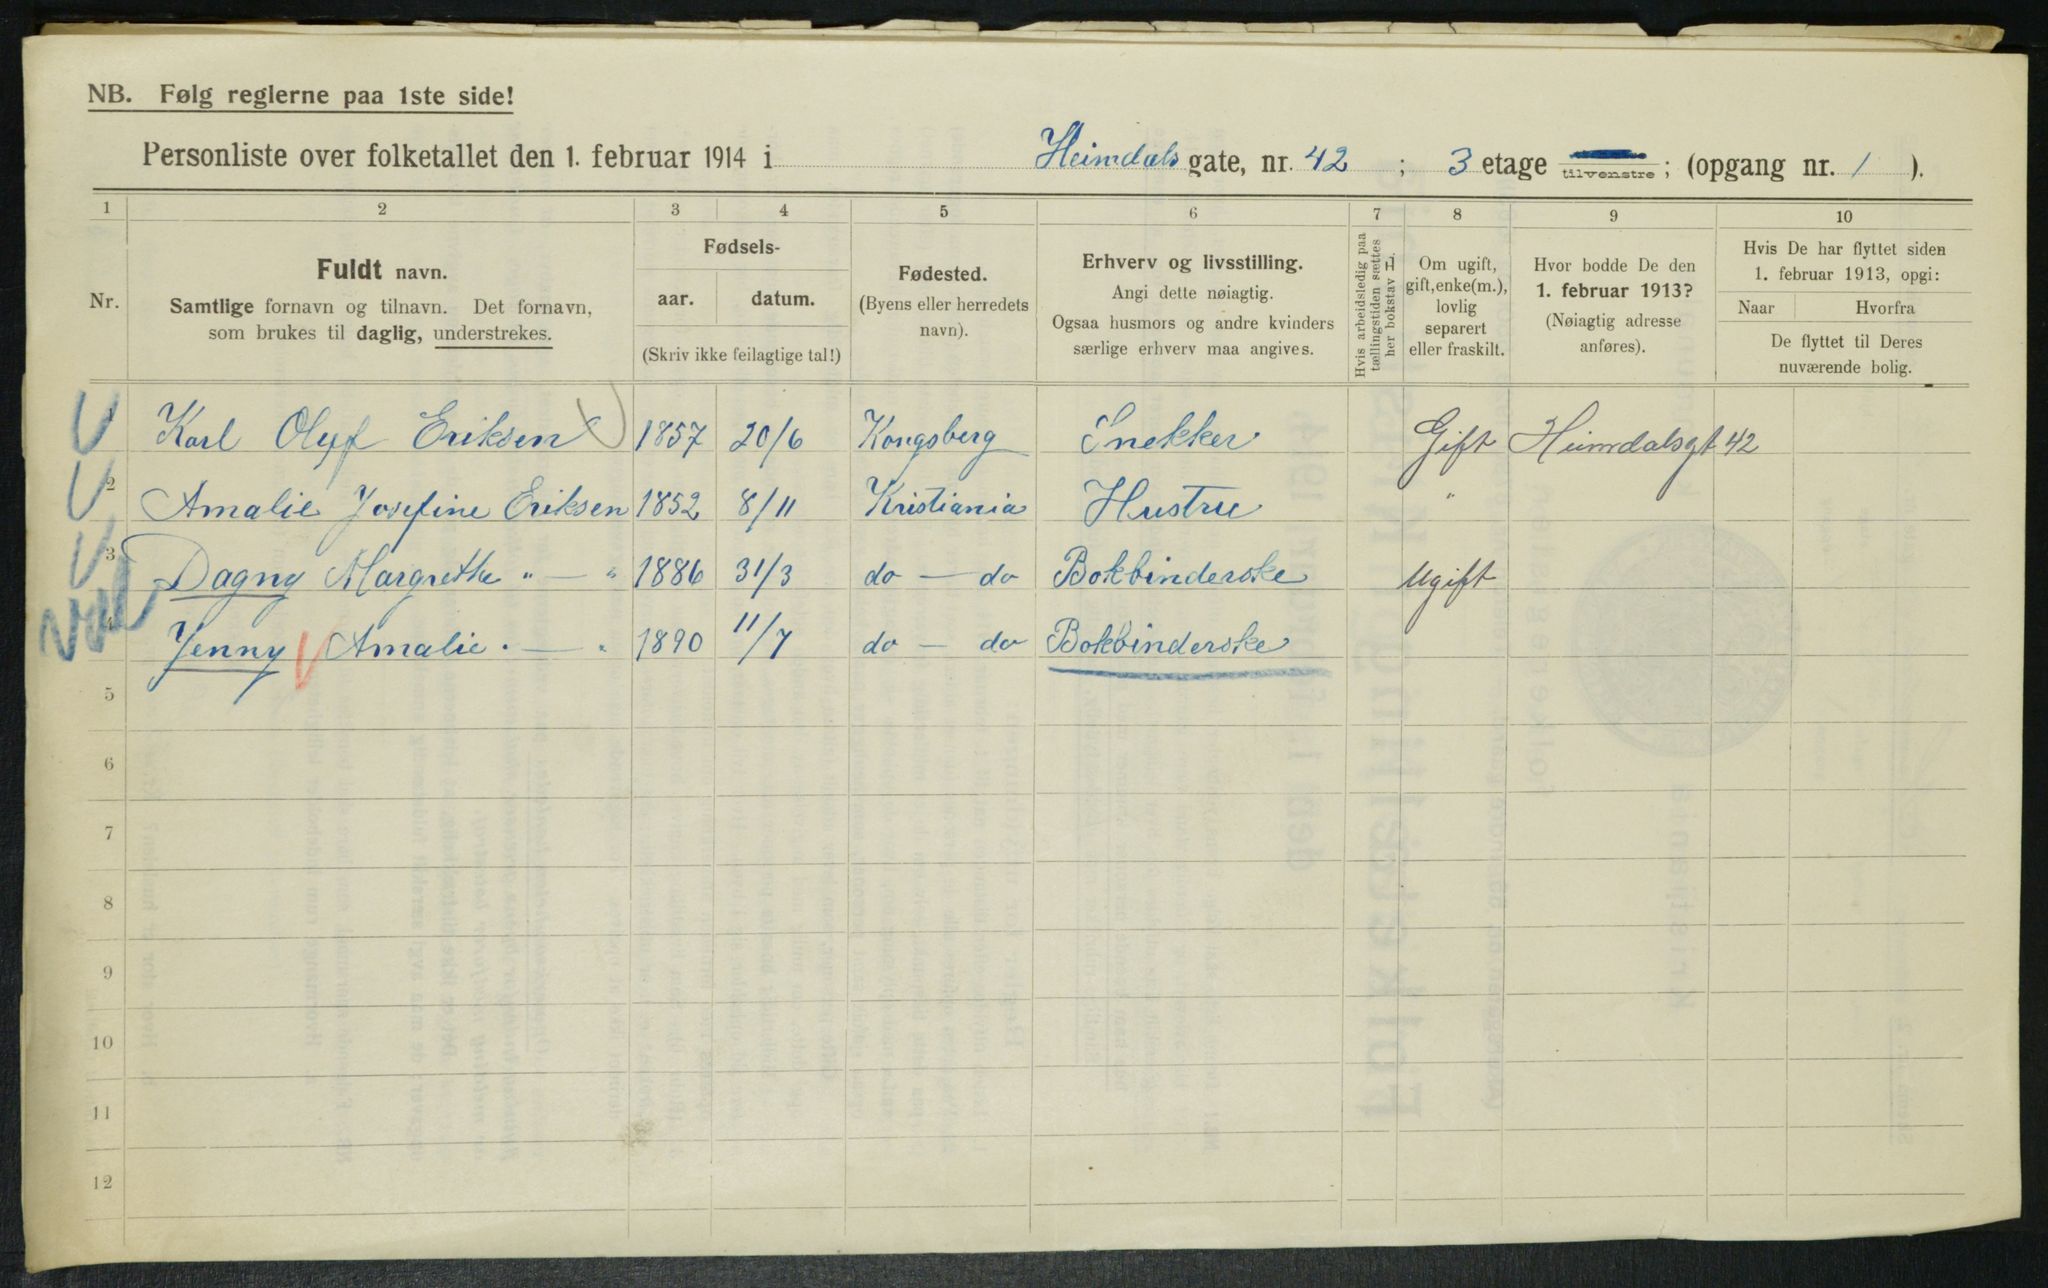 NB. Følg reglerne paa 1ste side!
Personliste over folketallet den 1. februar 1914 i Heimdals gate, nr. 42 ; 3 etage tilvenstre ; (opgang nr. 1 ).
1 2 3 4 5 6 7 8 9 10
Nr.
Fuldt navn.
Samtlige fornavn og tilnavn. Det fornavn,
som brukes til daglig, understrekes.
Fødsels-
aar. datum.
(Skriv ikke feilagtige tal!)
Fødested.
(Byens eller herredets
navn).
Erhverv og livsstilling.
Angi dette nøiagtig.
Ogsaa husmors og andre kvinders
særlige erhverv maa angives.
Hvis arbeidsledig paa
tællingstiden sættes
her bokstav L.
Om ugift,
gift, enke(m.),
lovlig
separert
eller fraskilt.
Hvor bodde De den
1. februar 1913?
(Nøiagtig adresse
anføres).
Hvis De har flyttet siden
1. februar 1913, opgi:
Naar Hvorfra
De flyttet til Deres
nuværende bolig.
1 Karl Oluf Eriksen 1857 20/6 Kongsberg Snekker Gift Heimdalsgt 42
2 Amalie Josefine Eriksen 1852 8/11 Kristiania Hustru "
3 Dagny Margrethe " — " 1886 31/3 do — do Bokbinderske Ugift
4 Jenny Amalie " — " 1890 11/7 do — do Bokbinderske
5
6
7
8
9
10
11
12